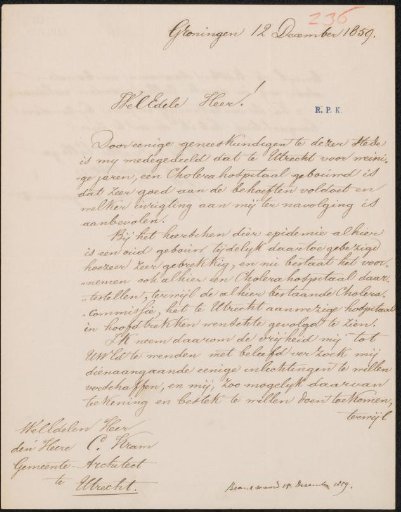 236
Groningen 12 December 1859.
WelEdele Heer!
R. P. K.
Door eenige geneeskundigen te dezer Stede
is mij medegedeeld dat te Utrecht voor weini-
ge jaren, een Cholera hospitaal gebouwd is
dat zeer goed aan de behoeften voldoet en
welker inrigting aan mij ter navolging is
aanbevolen.
Bij het heerschen dier epidemie alhier
is een oud gebouw tijdelijk daartoe gebezigd
hoezeer zeer gebrekkig, en nu bestaat het voor-
nemen ook alhier een Cholera hospitaal daar
testellen, terwijl de alhier bestaande Cholera
commissie, het te Utrecht aanwezige hospitaal
in hoofdtrekken wenschte gevolgd te zien.
Ik neem daarom de vrijheid mij tot
UWEd te wenden met beleefd verzoek mij
dienaangaande eenige inlichtingen te willen
verschaffen, en mij, zoo mogelijk daarvan
teekening en bestek te willen doen toekomen,
terwijl
WelEdelen Heer
den Heere C. Kram
Gemeente-Architect
te Utrecht.
December 1859.